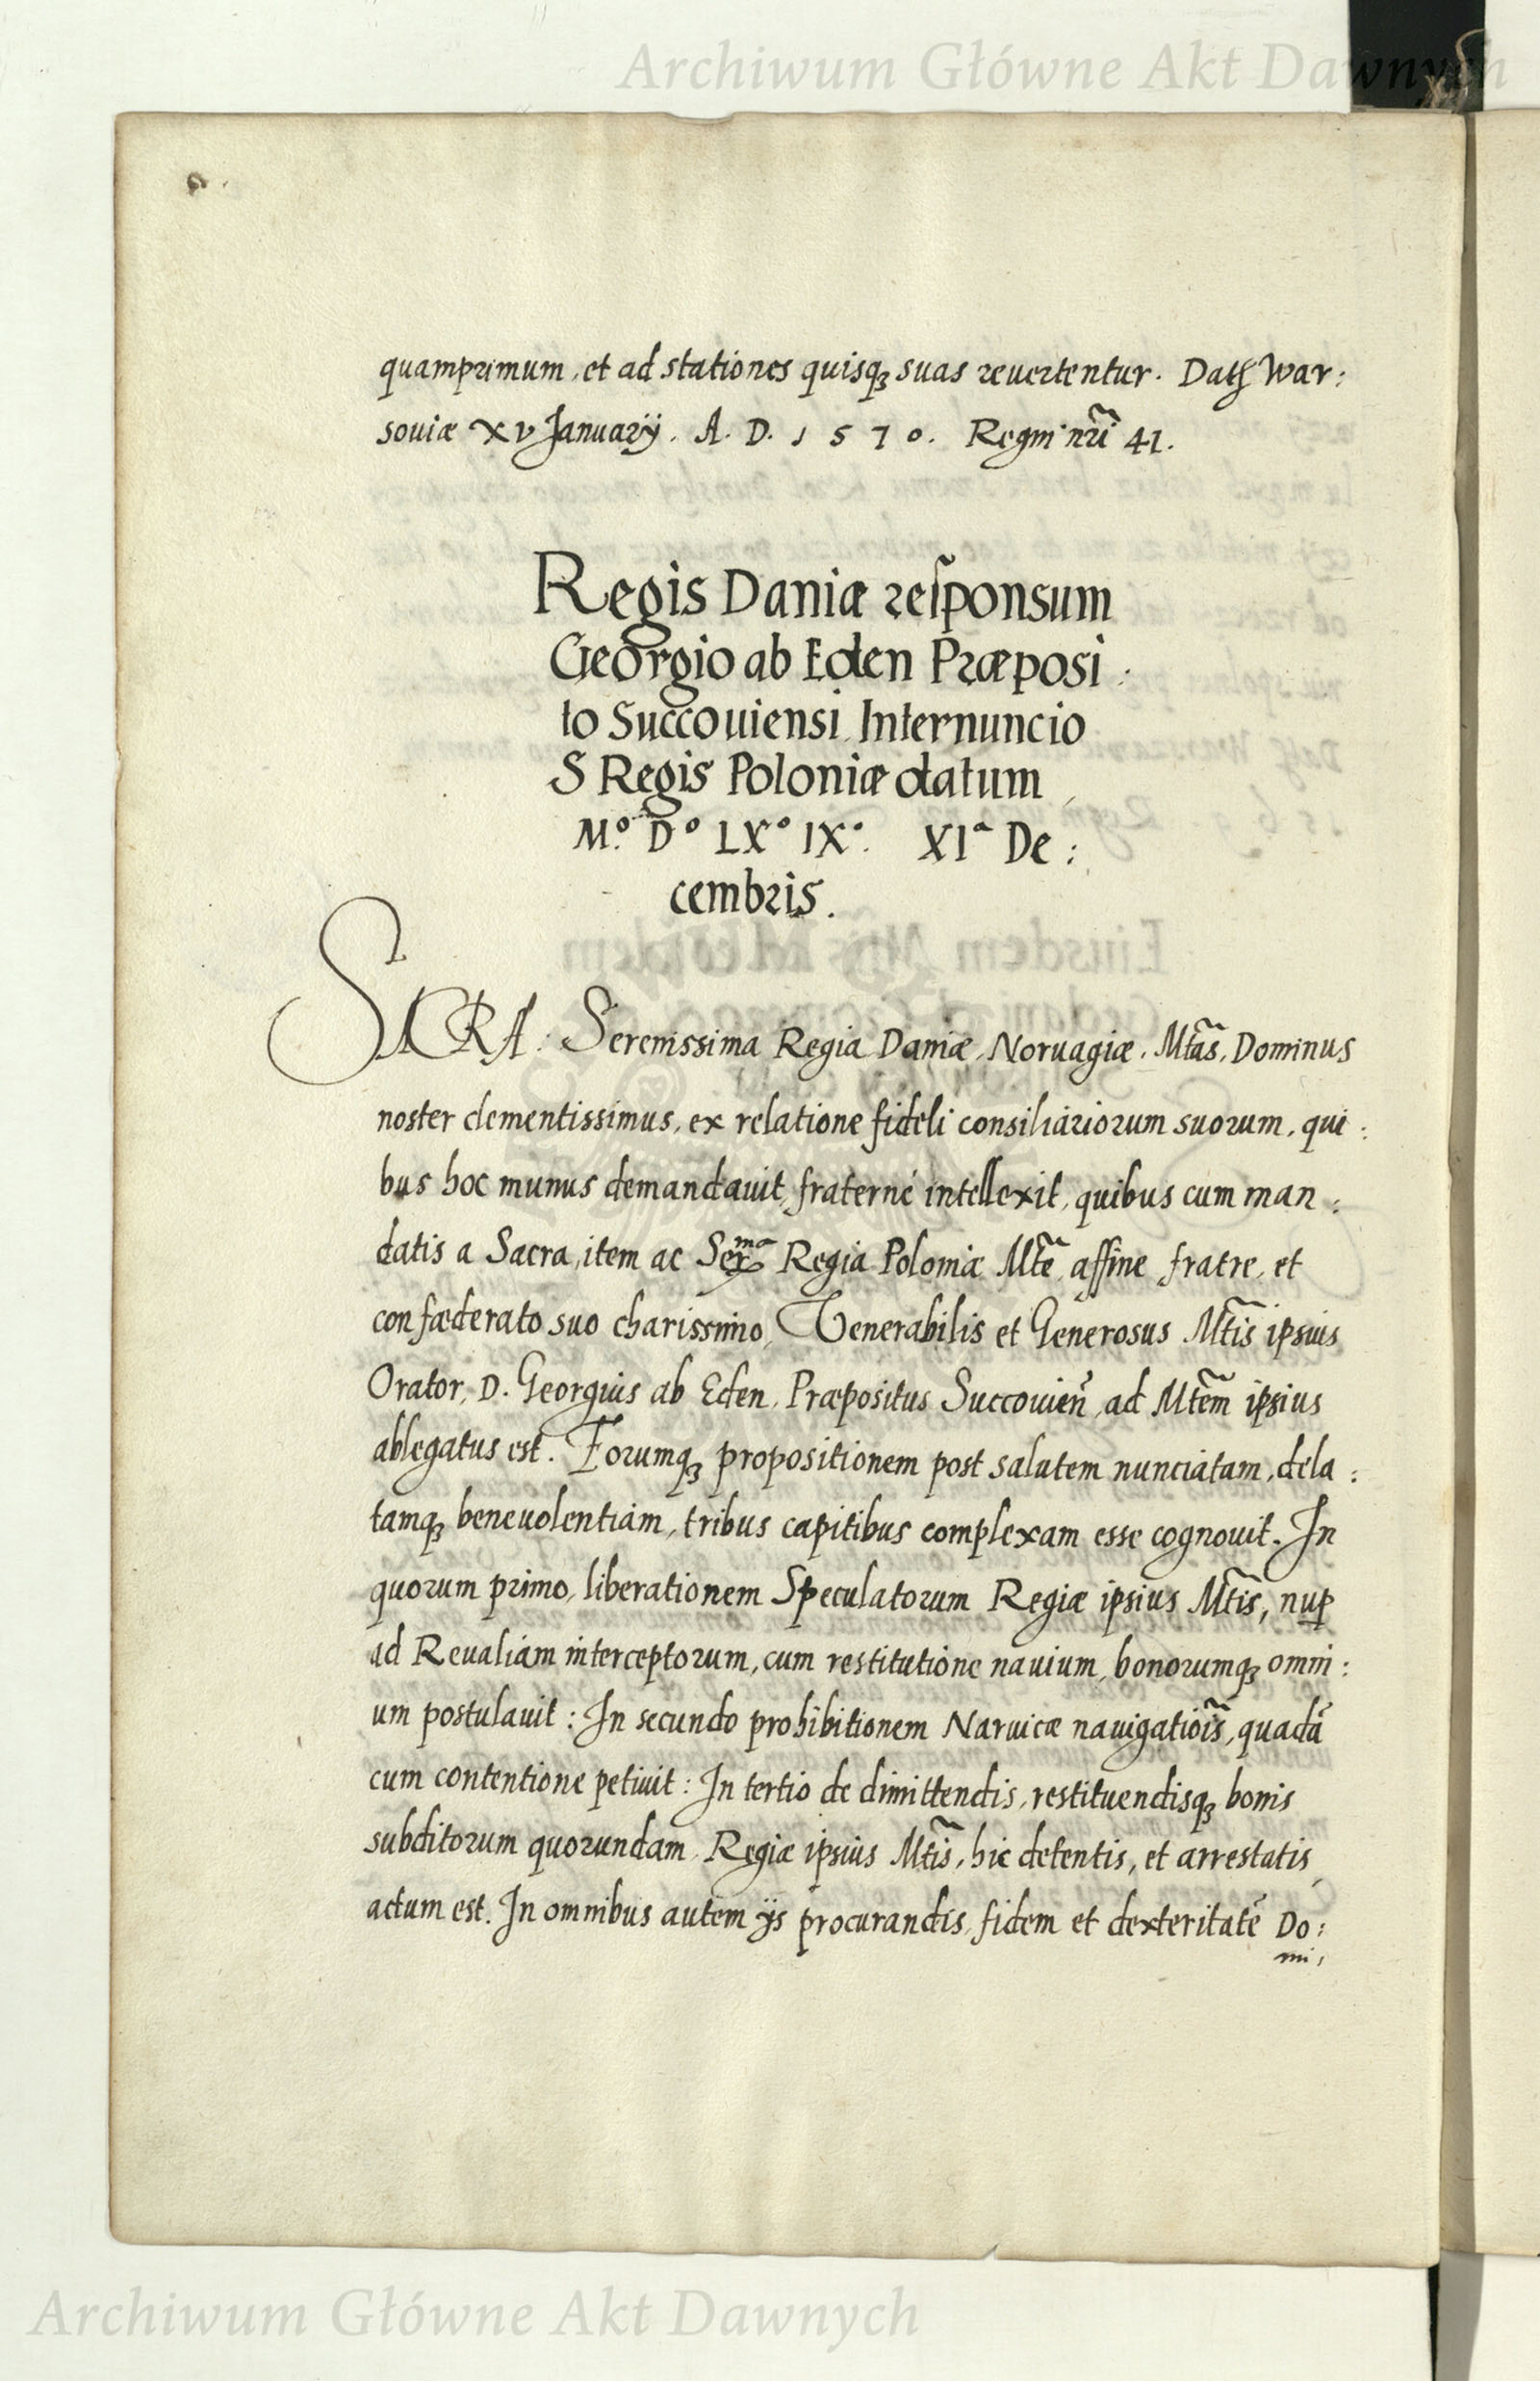 Archiwum Główne Akt Dawnych
quamprimum, et ad stationes quisqꝫ suas reuertentur. Datꝭ War:
souiæ XV Januarÿ. A. D. 1570. Regni nr̃i 41.
Regis Daniæ responsum
Georgio ab Eden Præposi:
to Succouiensi Internuncio
S Regis Poloniæ datum
M.º Dº LXº IXº. XIª De:
cembris.
SACRA. Serenissima Regia Daniæ, Noruagiæ. Mtãs, Dominus
noster clementissimus, ex relatione fideli consiliariorum suorum, qui:
bus hoc munus demandauit, fraterné intellexit, quibus cum man:
datis a Sacra, item ac Serma Regia Poloniæ Mtẽ, affine fratre, et
confæderato suo charissimo, Venerabilis et Generosus Mtĩs ipsius
Orator, D. Georgius ab Eden, Præpositus Succouieñ, ad Mtẽm ipsius
ablegatus est. Eorumqꝫ propositionem post salutem nunciatam, dela:
tamqꝫ beneuolentiam, tribus capitibus complexam esse cognouit. In
quorum primo, liberationem Speculatorum Regiæ ipsius Mtĩs, nuꝑ
ad Reualiam interceptorum, cum restitutione nauium, bonorumqꝫ omni:
um postulauit: In secundo prohibitionem Naruicæ nauigatiõis, quadã
cum contentione petiuit: In tertio de dimittendis, restituendisqꝫ bonis
subditorum quorundam Regiæ ipsius Mtĩs, hic detentis, et arrestatis,
actum est. In omnibus autem ijs procurandis, fidem et dexteritatẽ Do:
mi,
Archiwum Główne Akt Dawnych